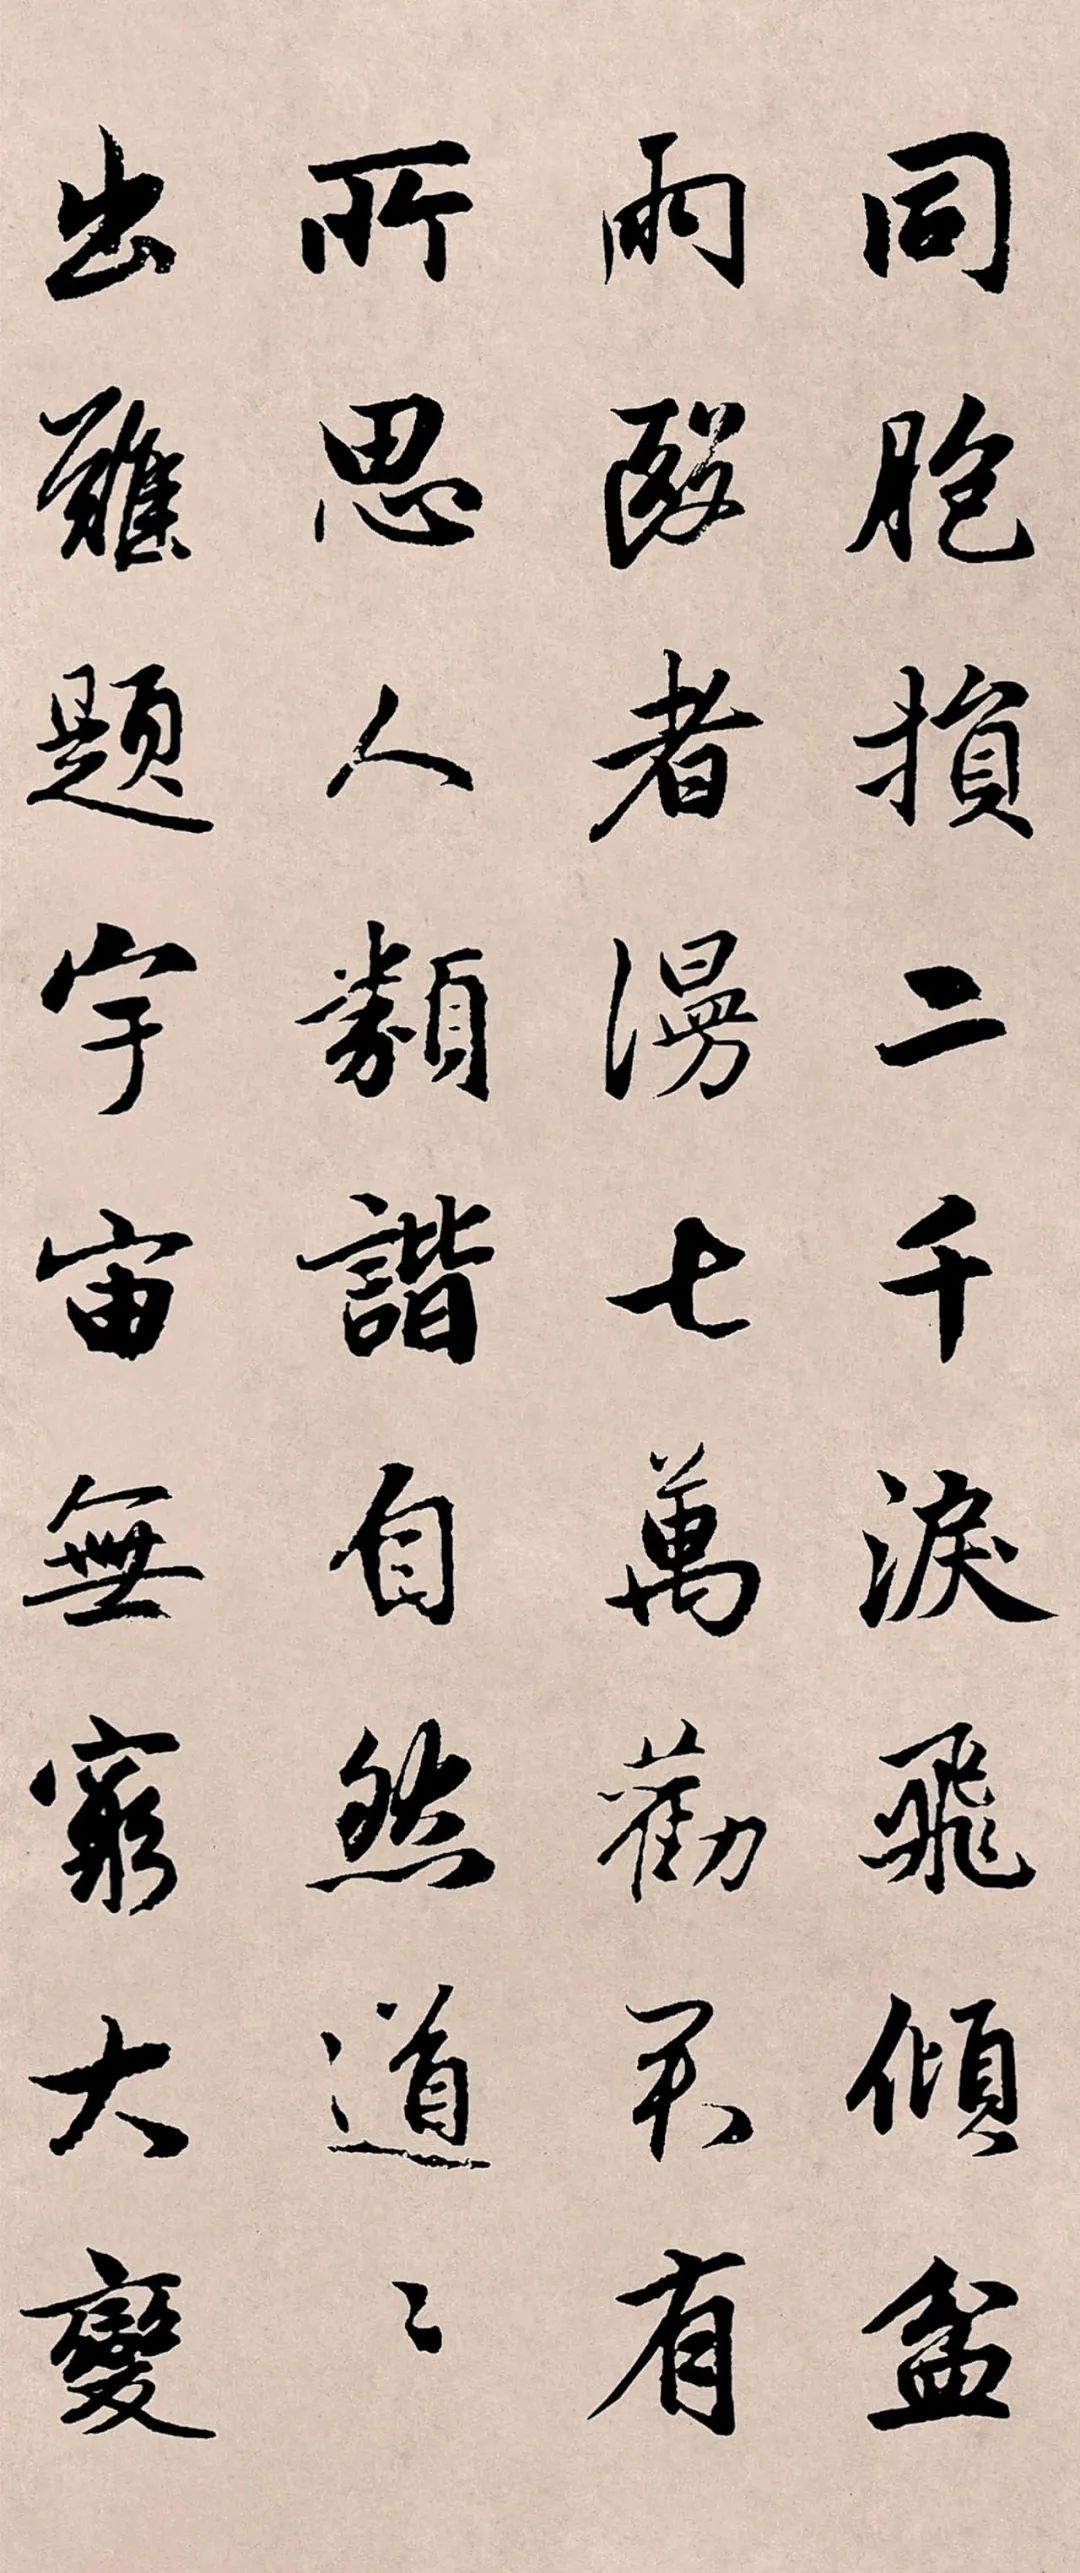 同胞損二千淚飛傾盆
雨毆者漫七萬勸不有
所思人類諧自然道〻
出難題宇宙無窮大變